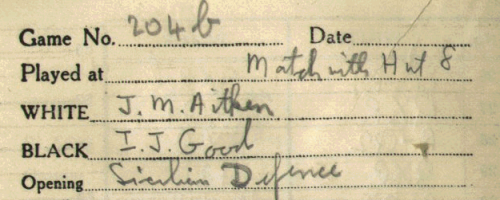 Game No. 204b Date
Played at Match with Hut 8
WHITE J. M. Aitken
BLACK I. J. Good
Opening Sicilian Defence